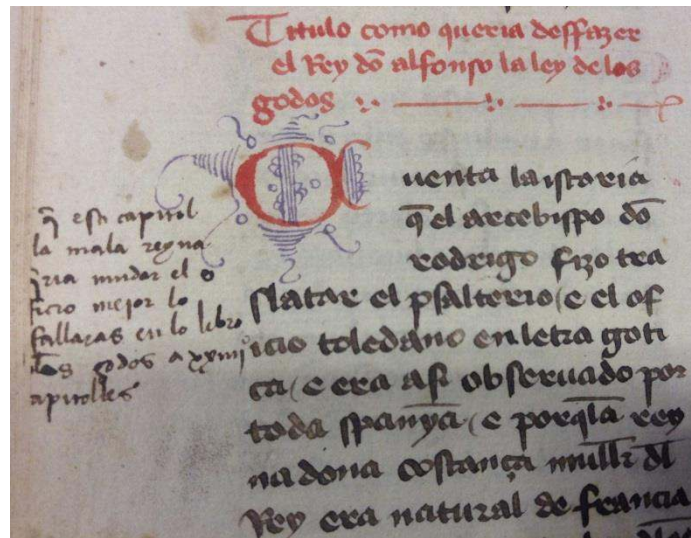 Titulo como queria desffazer
el Rey dõ alfonso la ley delos
godos
Cuenta la istoria
q̃ el arcebispo dõ
rodrigo fizo tra
slatar el psalterio (e el of
icio toledano en letra goti
ca (e era asi obseruado por
toda spanya (e porq̃la rey
na dona costança mull̃r dl̃
Rey era natural de francia
q̃ esti capitol
la mala reyna
q̃ria mudar el o
ficio mejor lo
fallaras en lo lebro
dlos godos a xxiiij
apitolles